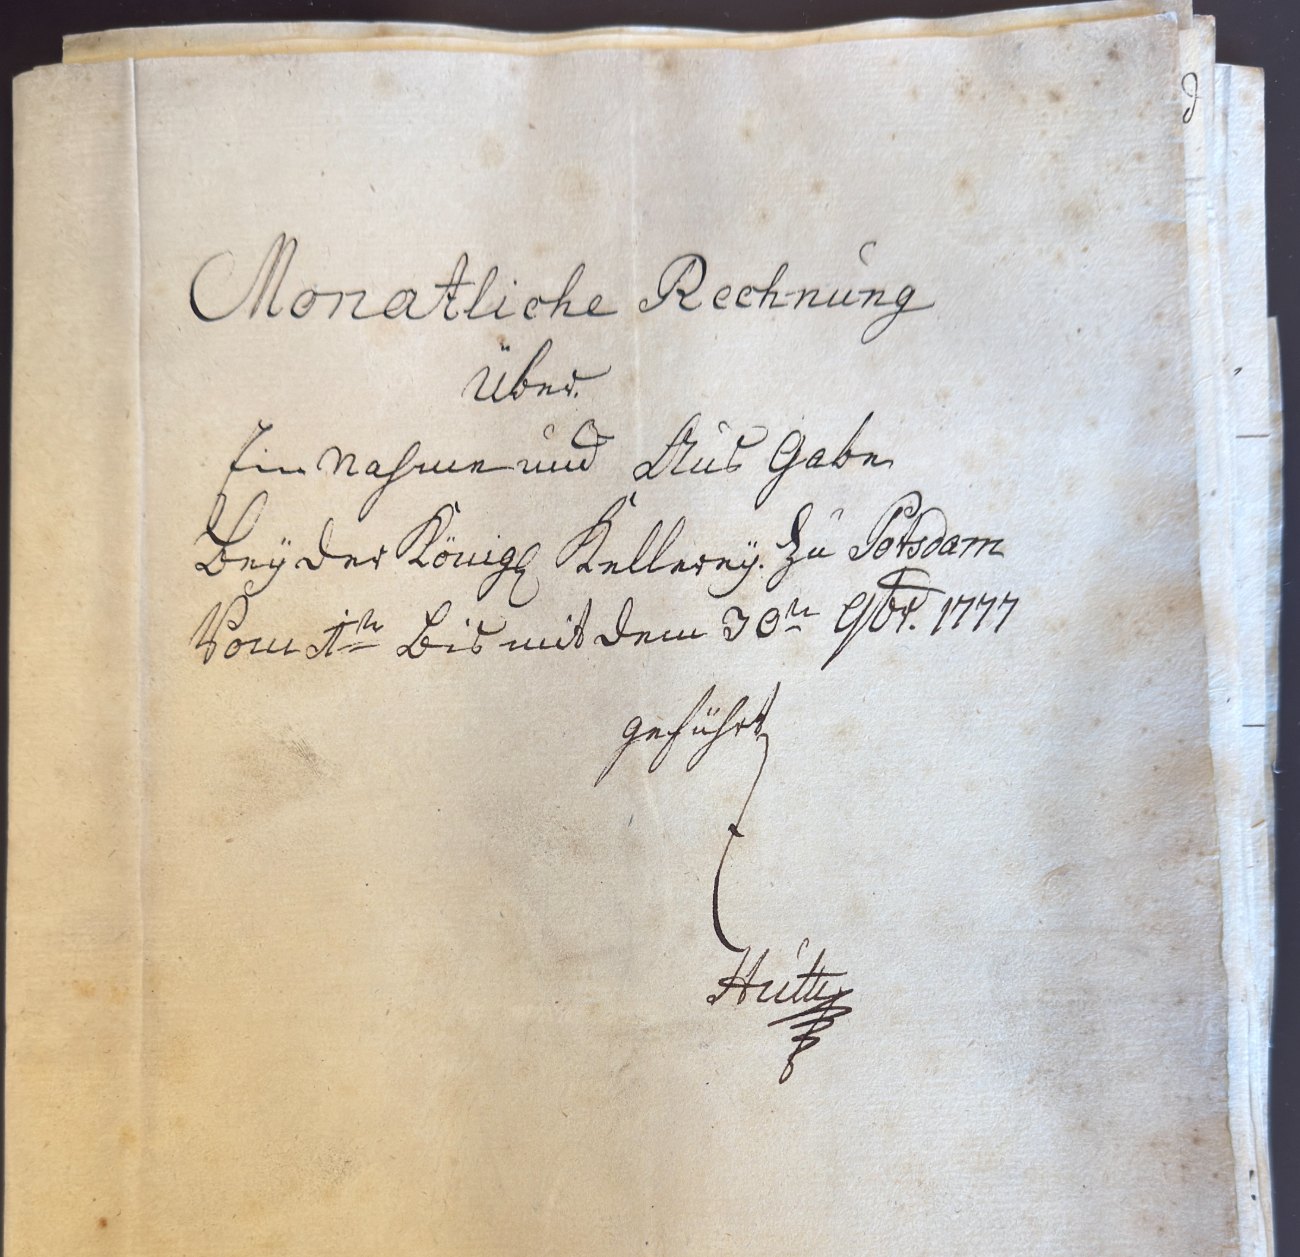 Monatliche Rechnung
Über
Ein nahme und Aus Gabe
Bey der Königl Kellerey. Zu Potsdam
Vom 1tn Bis mit dem 30tn 9br. 1777
geführt